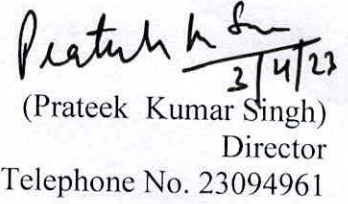 Prateek K Sin
3/4/23
(Prateek Kumar Singh)
Director
Telephone No. 23094961